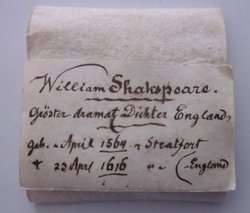 William Shakspeare.
Größter dramat Dichter England,
geb. April 1564 Stratfort
† 23 Aprl 1616 (England